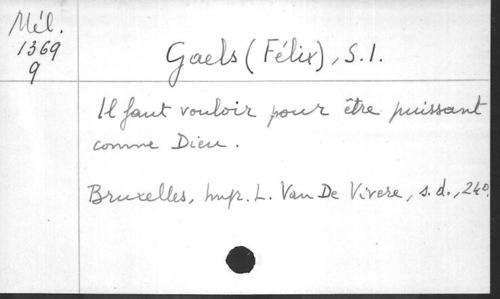 Mél.
1369
9
Gaels (Félix), S.I.
Il faut vouloir pour être puissant
comme Dieu.
Bruxelles, Impr. L. Van De Vivere, s.d., 24°.